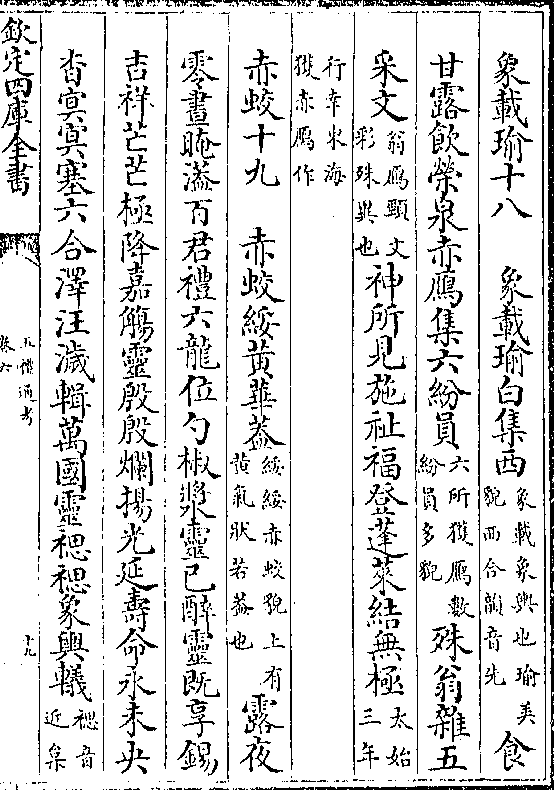 象載瑜十八　象載瑜白集西象載象輿也瑜美貌西合韻音先食
甘露飲榮泉赤鴈集六紛員六所獲鴈數紛員多貌殊翁雜五
采文翁鴈頸文彩殊異也神所見施祉福登蓬萊結無極太始三年
行幸東海獲赤鴈作
赤蛟十九　赤蛟綏黄華蓋綏綏赤蛟貌上有黄氣狀若蓋也露夜
零晝晻溢百君禮六龍位勺椒漿靈已醉靈既享錫
吉祥芒芒極降嘉觴靈殷殷爛揚光延壽命永未央
杳冥冥塞六合澤汪濊輯萬國靈禗禗象輿轙禗音近枲
欽定四庫全書
五禮通考
卷六
十九